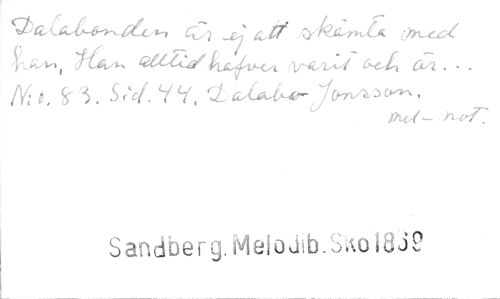 Dalabonden är ej att skämta med
han, Han alltid hafver varit och är...
N:o. 83. Sid. 44. Dalabo Jonsson.
mel- not.
Sandberg. Melodib. Sko 1869